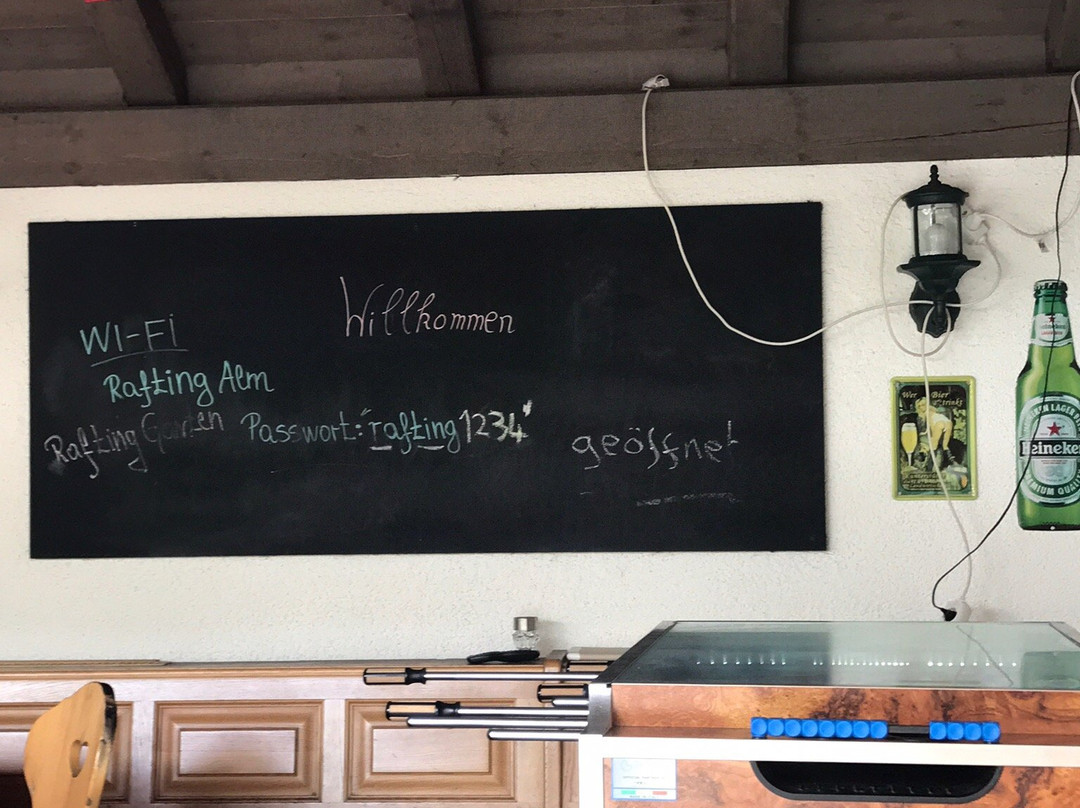 Willkommen
WI-Fi
Rafting Alm
Rafting Garten Passwort: "rafting1234"
geöffnet
Wer Bier trinkt
Heineken
PREMIUM QUALITY